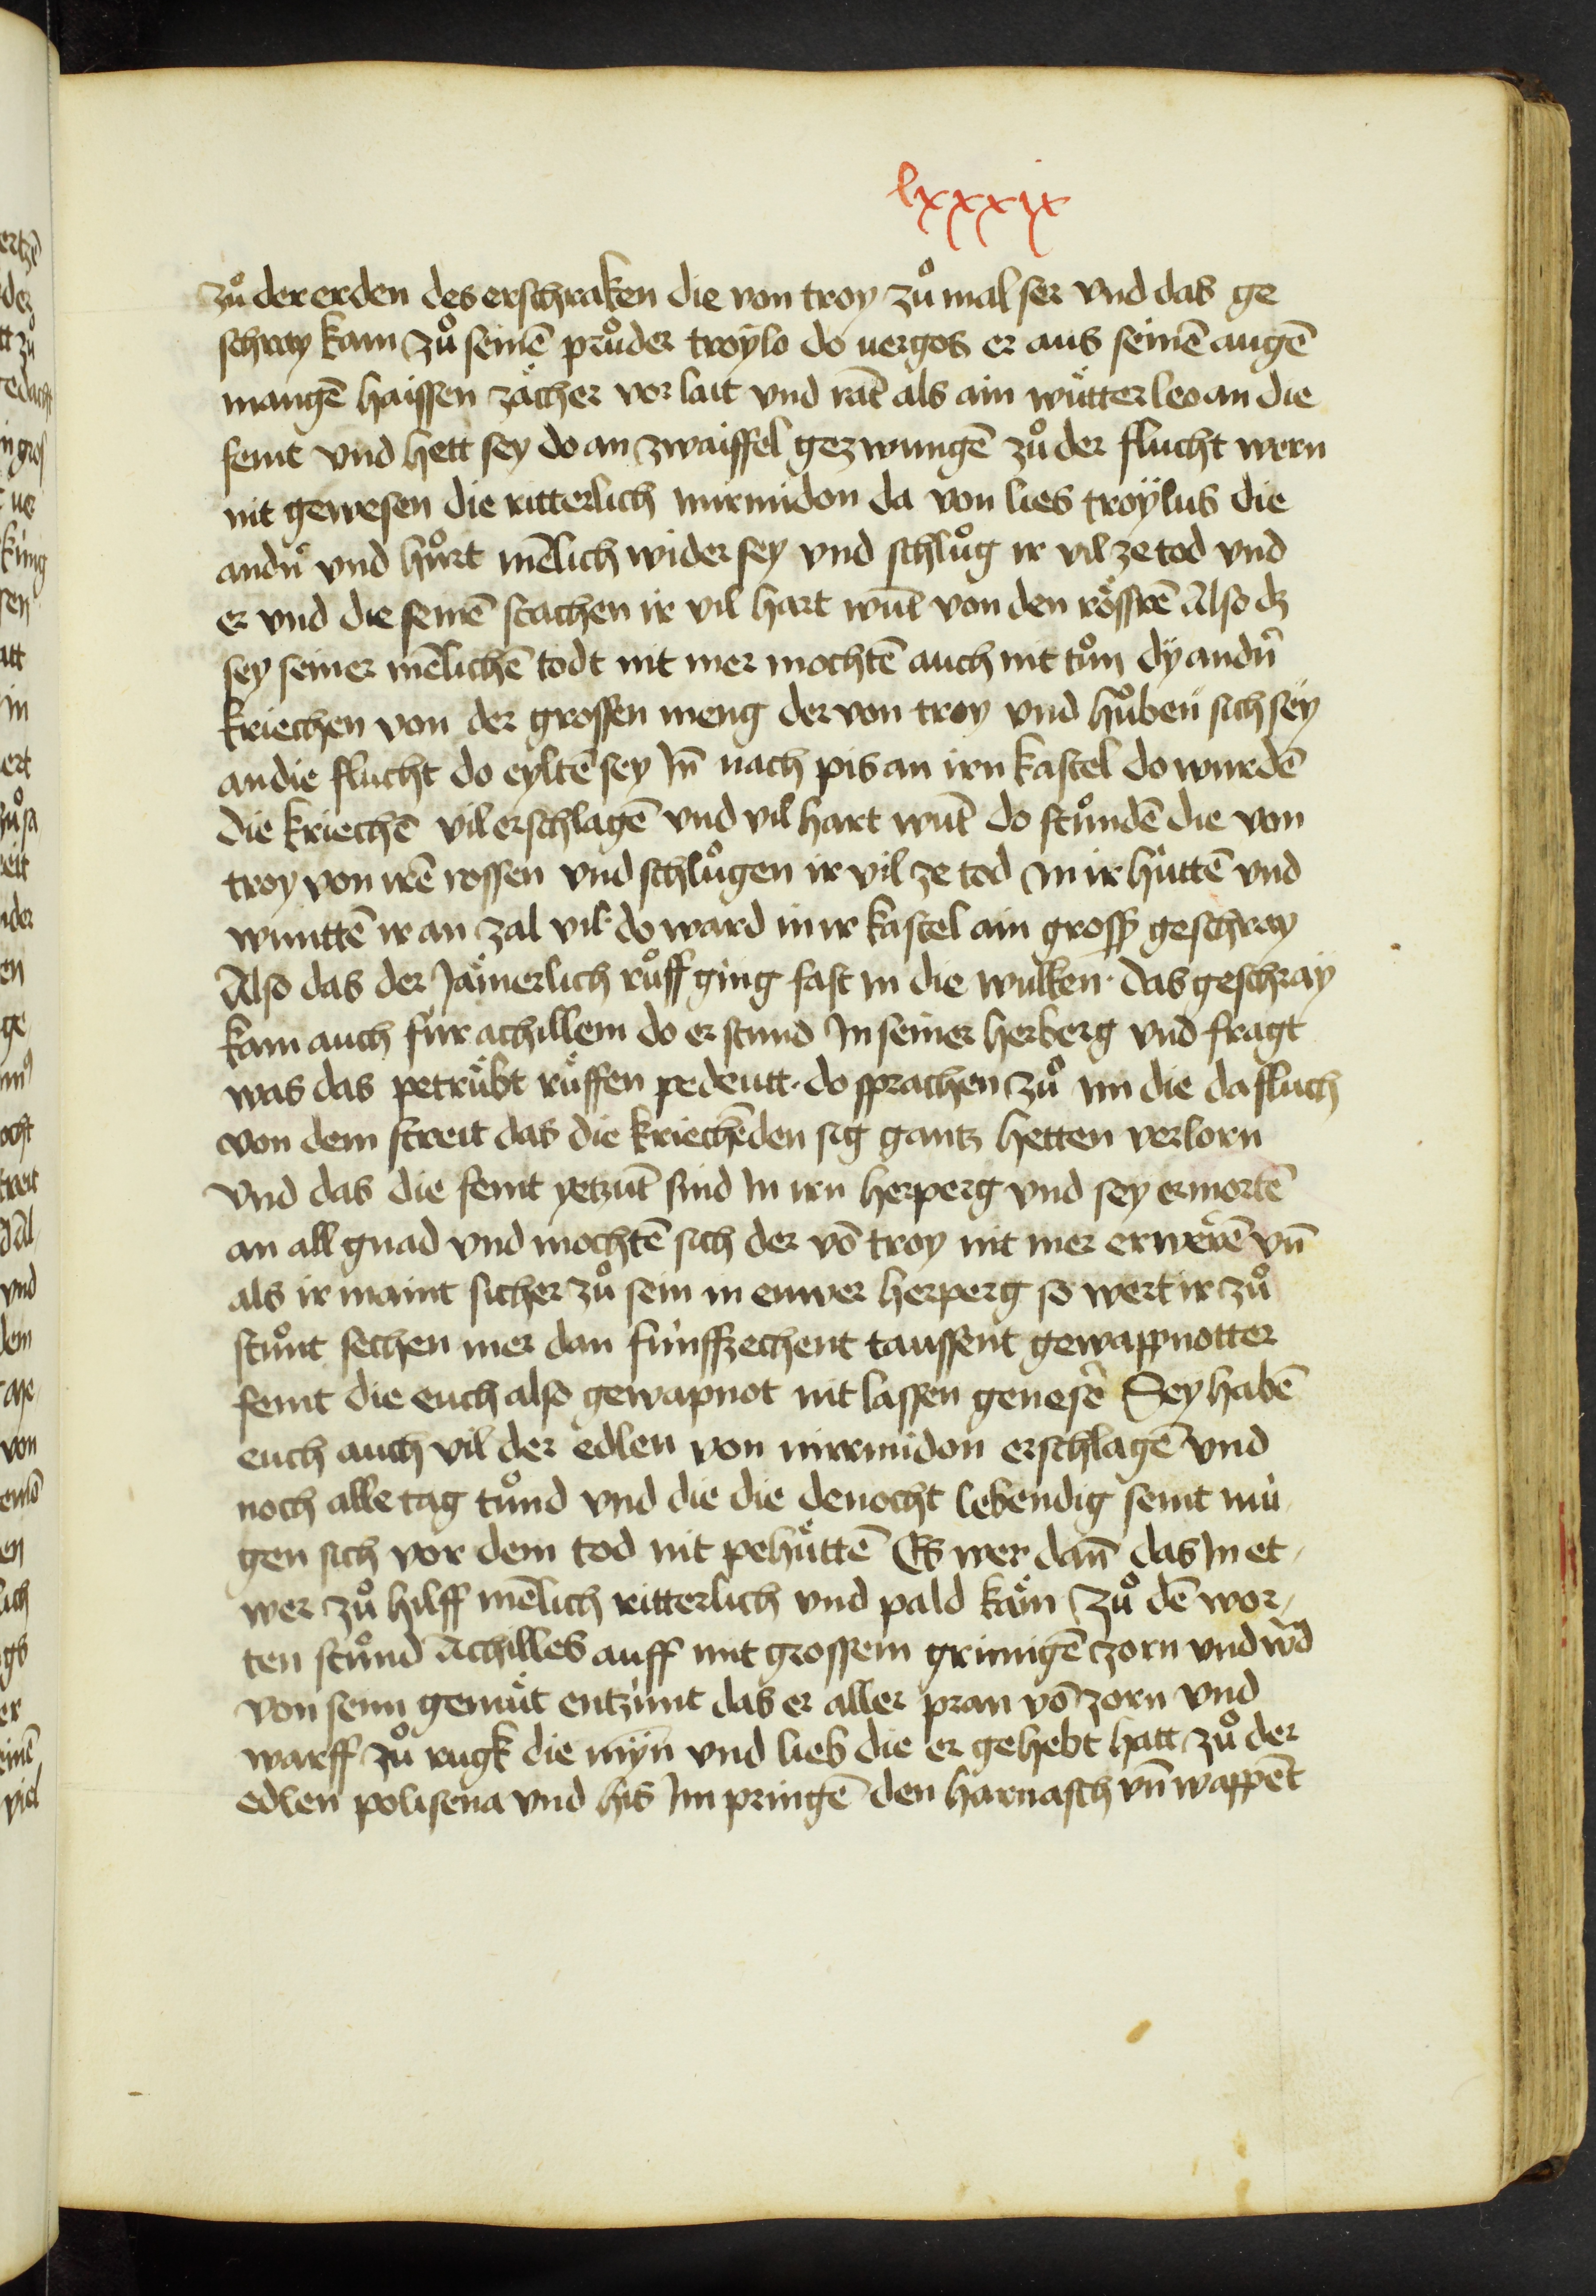 lxxxix
zů der erden des erschraken die von troy zů mal ser vnd das ge
schray kam zů seinē průder troÿlo do uergos er aus seinē augē
mangē haissen zächer vor lait vnd rāt als ain wütter leo an die
feint vnd hett sey do an zwaiffel gezwungē zů der flucht wern
nit gewesen die ritterlich mirmidon da von lies troÿlus die
andn̄ vnd hůrt mēlich wider sey vnd schlůg ir vil ze tod vnd
er vnd die seinē stachen ir vil hart wūt von den rössen̄ Also dz
sey seiner mēlichē todt nit mer mochtē auch nit tůn dÿ andn̄
kriechen von der grossen meng der von troy vnd hůben sich sëy
an die flucht do eyltē sey In̄ nach pis an irn kastel do wurdē
die kriechē vil erschlagē vnd vil hart wūt do stůndē die von
troy von irē rossen vnd schlůgen ir vil ze tod in ir hüttē vnd
wunttē ir an zal vil· do ward in ir kastel ain gross geschray
Also das der Jämerlich růff ging fast in die wulken· das geschraÿ
kam auch für achillem do er stund In seiner herberg vnd fragt
was das petrübt rüffen pedeutt· do sprachen zů im die da fluch
von dem streit das die kriechē den sig gantz hetten verlorn
vnd das die feint yetzūt sind In irn herperg vnd sey ermortē
an all gnad vnd mochtē sich der vō troy nit mer erwerē vn̄
als ir maint sicher zů sein in euwer herperg so wert ir zů
stůnt sechen mer dan fünffzechent taussent gewappnotter
feint die euch also gewapnot nit lassen genesē Sey habē
euch auch vil der edlen von mirmidon erschlagē vnd
noch alle tag tůnd vnd die die denocht lebendig seint mü
gen sich vor dem tod nit pehüttē Es wer dan̄ das In et-
wer zů hilff mēlich ritterlich vnd pald käm zů dē wor-
ten stůnd Achilles auff mit grossem grimigē zorn vnd wd̄
von seim gemüt entzünt das er aller pran vō zorn vnd
warff zů rugk die mÿn̄ vnd lieb die er gehebt hatt zů der
edlen polisena vnd his Im pringē den harnasch vn̄ wappēt